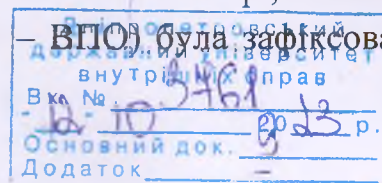 – ВПО) була зафіксова
Дніпропетровський
державний університет
внутрішніх справ
Вхд № 3761
12 10 2023 р.
Основний док. 9
Додаток –